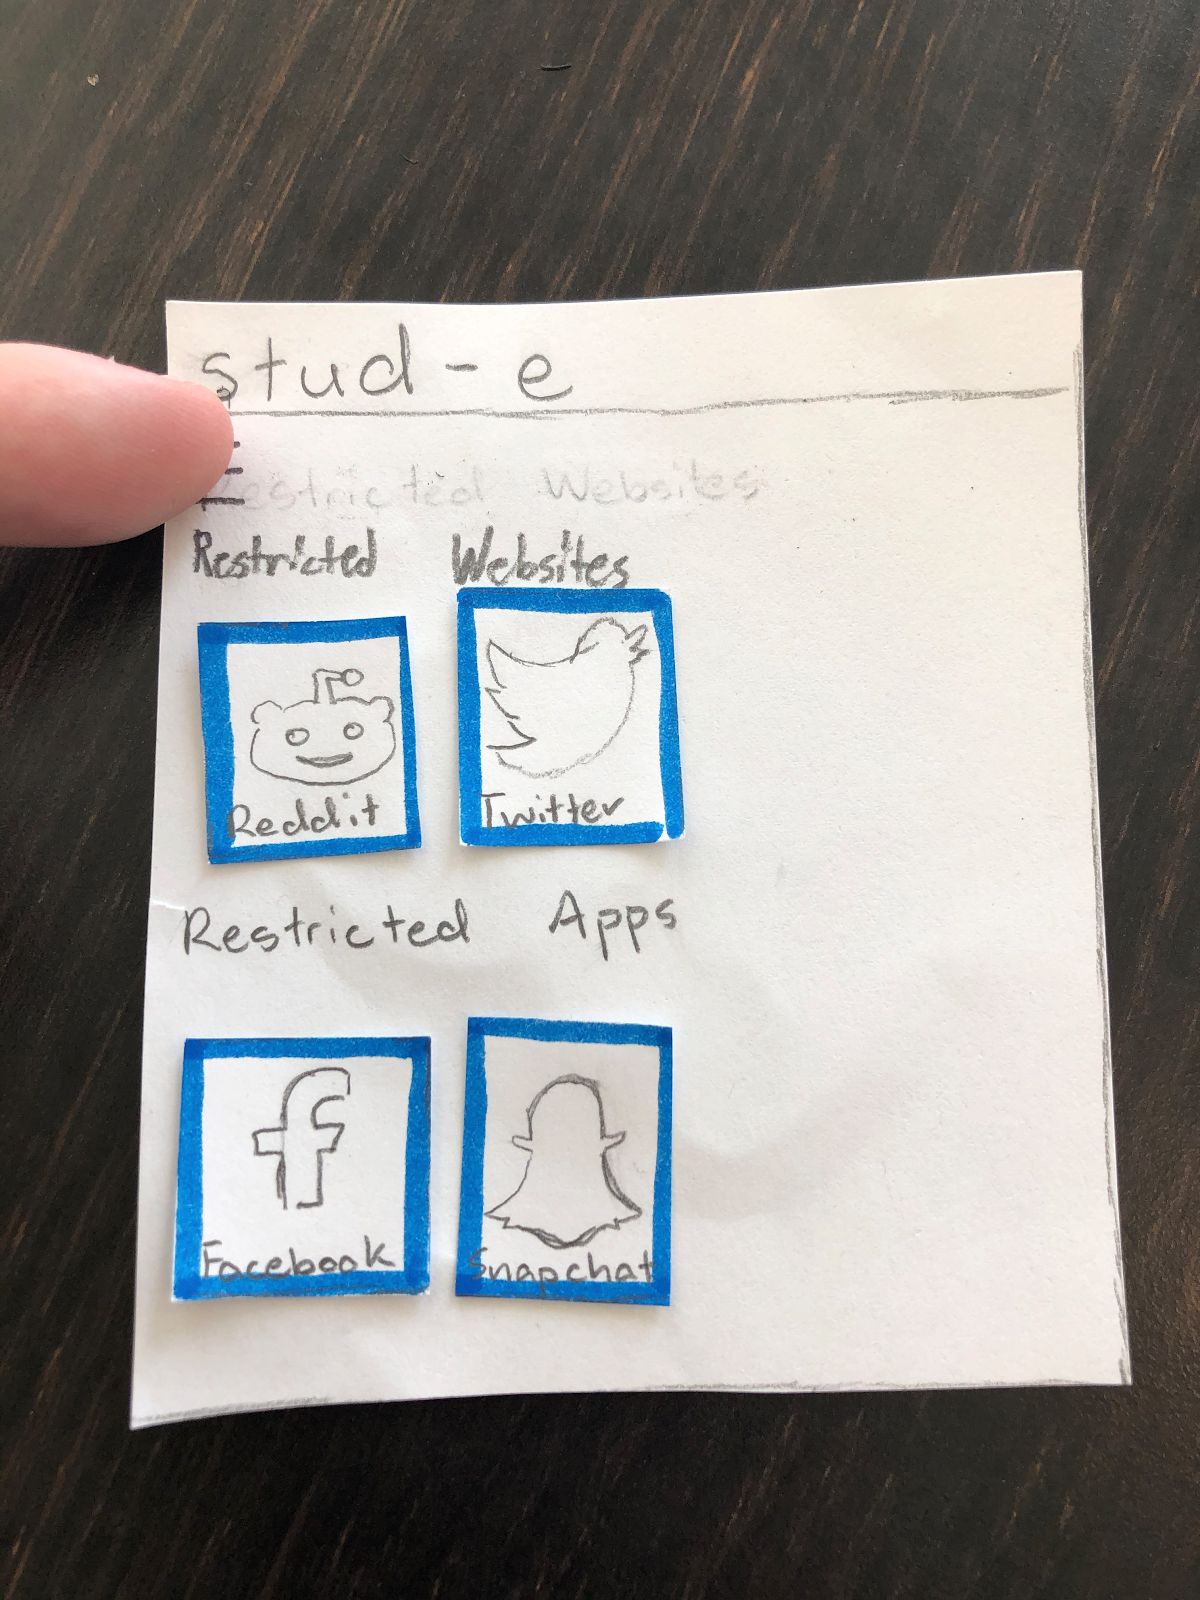 stud-e
Restricted Websites
Restricted Websites
Reddit
Twitter
Restricted Apps
Facebook
Snapchat